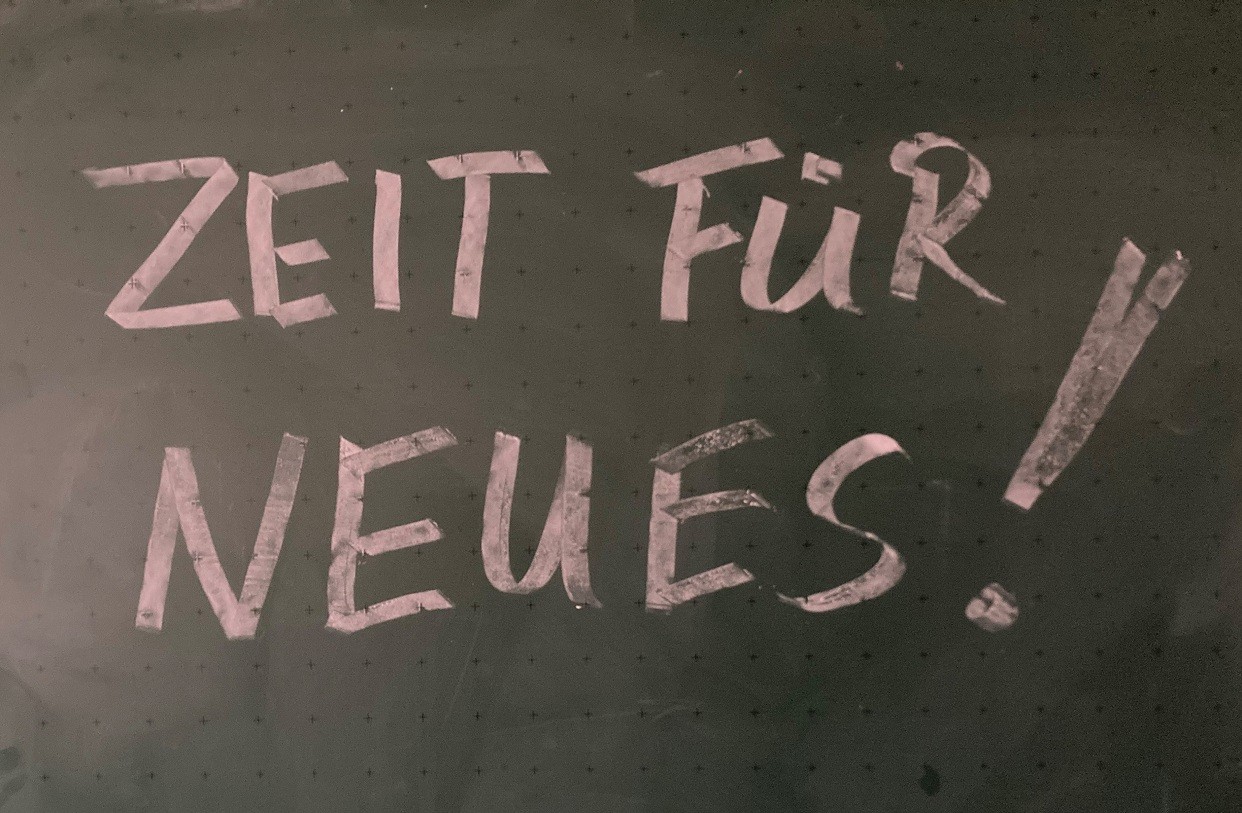 ZEIT FÜR
NEUES!